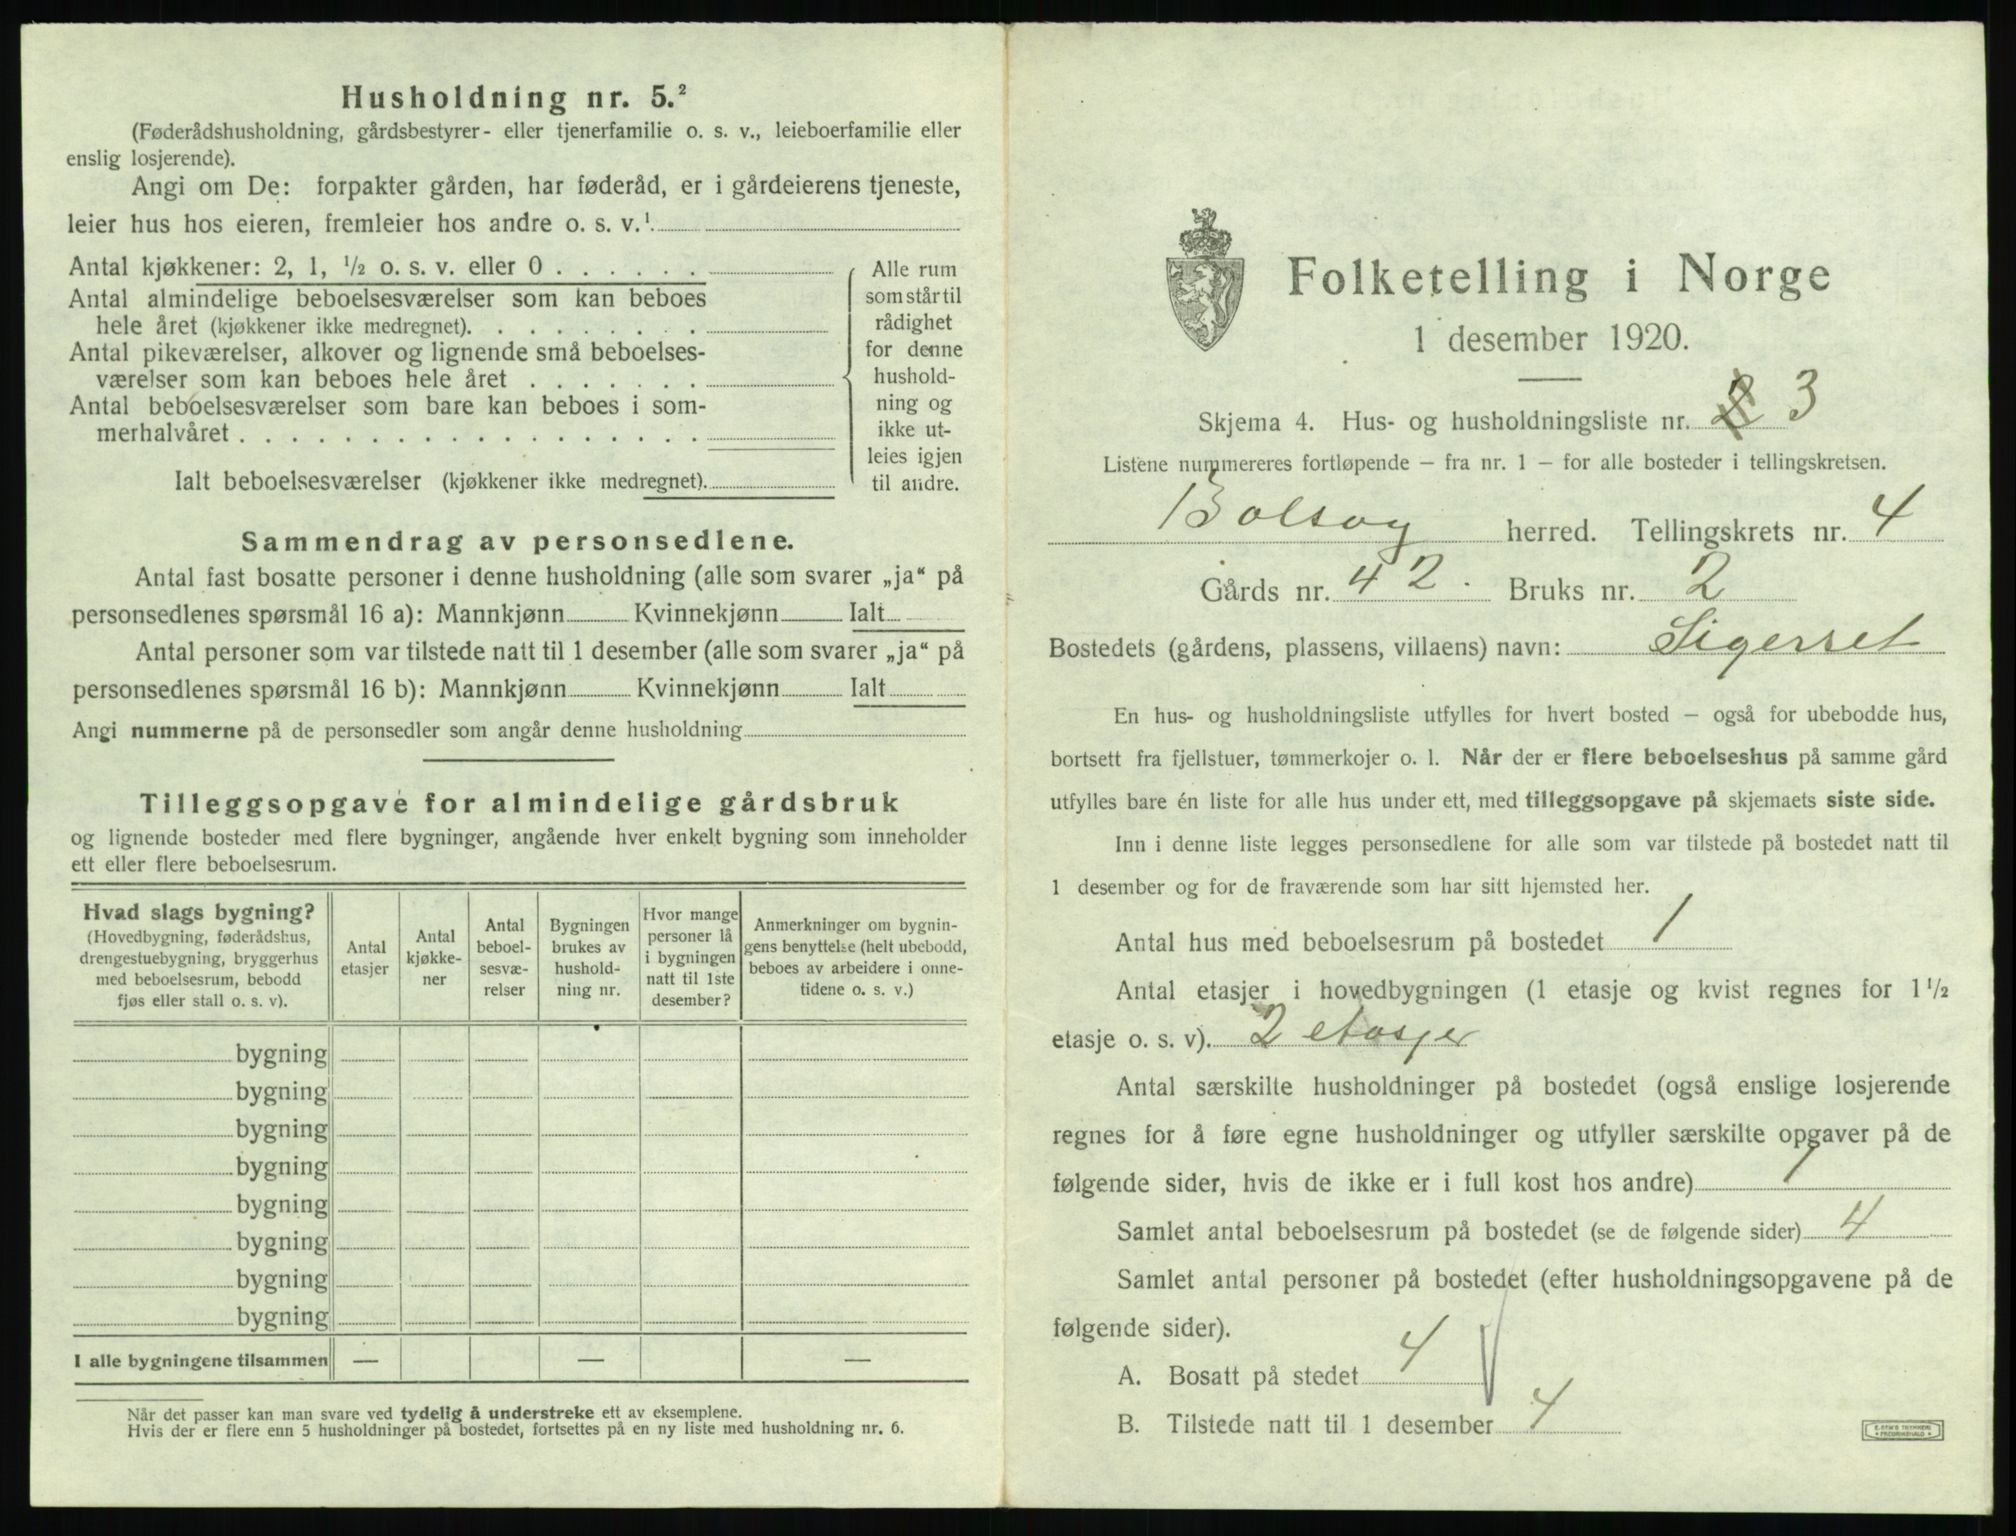 Husholdning nr. 5.²
(Føderådshusholdning, gårdsbestyrer- eller tjenerfamilie o. s. v., leieboerfamilie eller
enslig losjerende).
Angi om De: forpakter gården, har føderåd, er i gårdeierens tjeneste,
leier hus hos eieren, fremleier hos andre o. s. v.¹
Antal kjøkkener: 2, 1, ½ o. s. v. eller 0 . . . . . .
Antal almindelige beboelsesværelser som kan beboes
hele året (kjøkkener ikke medregnet). . . . . . . . .
Antal pikeværelser, alkover og lignende små beboelses-
værelser som kan beboes hele året . . . . . . .
Antal beboelsesværelser som bare kan beboes i som-
merhalvåret . . . . . . . . . . . . . . . . . .
Ialt beboelsesværelser (kjøkkener ikke medregnet).
Alle rum
som står til
rådighet
for denne
hushold-
ning og
ikke ut-
leies igjen
til andre.
Sammendrag av personsedlene.
Antal fast bosatte personer i denne husholdning (alle som svarer „ja“ på
personsedlenes spørsmål 16 a): Mannkjønn Kvinnekjønn Ialt
Antal personer som var tilstede natt til 1 desember (alle som svarer „ja“ på
personsedlenes spørsmål 16 b): Mannkjønn Kvinnekjønn Ialt
Angi nummerne på de personsedler som angår denne husholdning
Tilleggsopgave for almindelige gårdsbruk
og lignende bosteder med flere bygninger, angående hver enkelt bygning som inneholder
ett eller flere beboelsesrum.
Hvad slags bygning?
(Hovedbygning, føderådshus,
drengestuebygning, bryggerhus
med beboelsesrum, bebodd
fjøs eller stall o. s. v).
Antal
etasjer
Antal
kjøkke-
ner
Antal
beboel-
sesvæ-
relser
Bygningen
brukes av
hushold-
ning nr.
Hvor mange
personer lå
i bygningen
natt til 1ste
desember?
Anmerkninger om bygnin-
gens benyttelse (helt ubebodd,
beboes av arbeidere i onne-
tidene o. s. v.)
bygning
bygning
bygning
bygning
bygning
bygning
bygning
bygning
I alle bygningene tilsammen — — —
Når det passer kan man svare ved tydelig å understreke ett av eksemplene.
Hvis der er flere enn 5 husholdninger på bostedet, fortsettes på en ny liste med husholdning nr. 6.
Folketelling i Norge
1 desember 1920.
Skjema 4. Hus- og husholdningsliste nr. 2 3
Listene nummereres fortløpende – fra nr. 1 – for alle bosteder i tellingskretsen.
Bolsøy herred. Tellingskrets nr. 4
Gårds nr. 42. Bruks nr. 2
Bostedets (gårdens, plassens, villaens) navn: Sigerset
En hus- og husholdningsliste utfylles for hvert bosted – også for ubebodde hus,
bortsett fra fjellstuer, tømmerkojer o. l. Når der er flere beboelseshus på samme gård
utfylles bare én liste for alle hus under ett, med tilleggsopgave på skjemaets siste side.
Inn i denne liste legges personsedlene for alle som var tilstede på bostedet natt til
1 desember og for de fraværende som har sitt hjemsted her.
Antal hus med beboelsesrum på bostedet 1
Antal etasjer i hovedbygningen (1 etasje og kvist regnes for 1½
etasje o. s. v). 2 etasjer
Antal særskilte husholdninger på bostedet (også enslige losjerende
regnes for å føre egne husholdninger og utfyller særskilte opgaver på de
følgende sider, hvis de ikke er i full kost hos andre) 1
Samlet antal beboelsesrum på bostedet (se de følgende sider) 4
Samlet antal personer på bostedet (efter husholdningsopgavene på de
følgende sider).
A. Bosatt på stedet 4
B. Tilstede natt til 1 desember 4